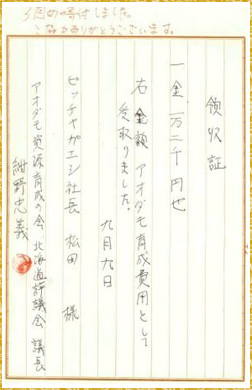 3回の寄付しました。
ごなありがとうございます。
領収証
一金 一万二千円也
右金額アオダモ育成費用として
受取りました。
九月九日
ピッチャガエシ社長 松田 様
アオダモ資源育成の会 北海道評議会 議長
紺野忠義